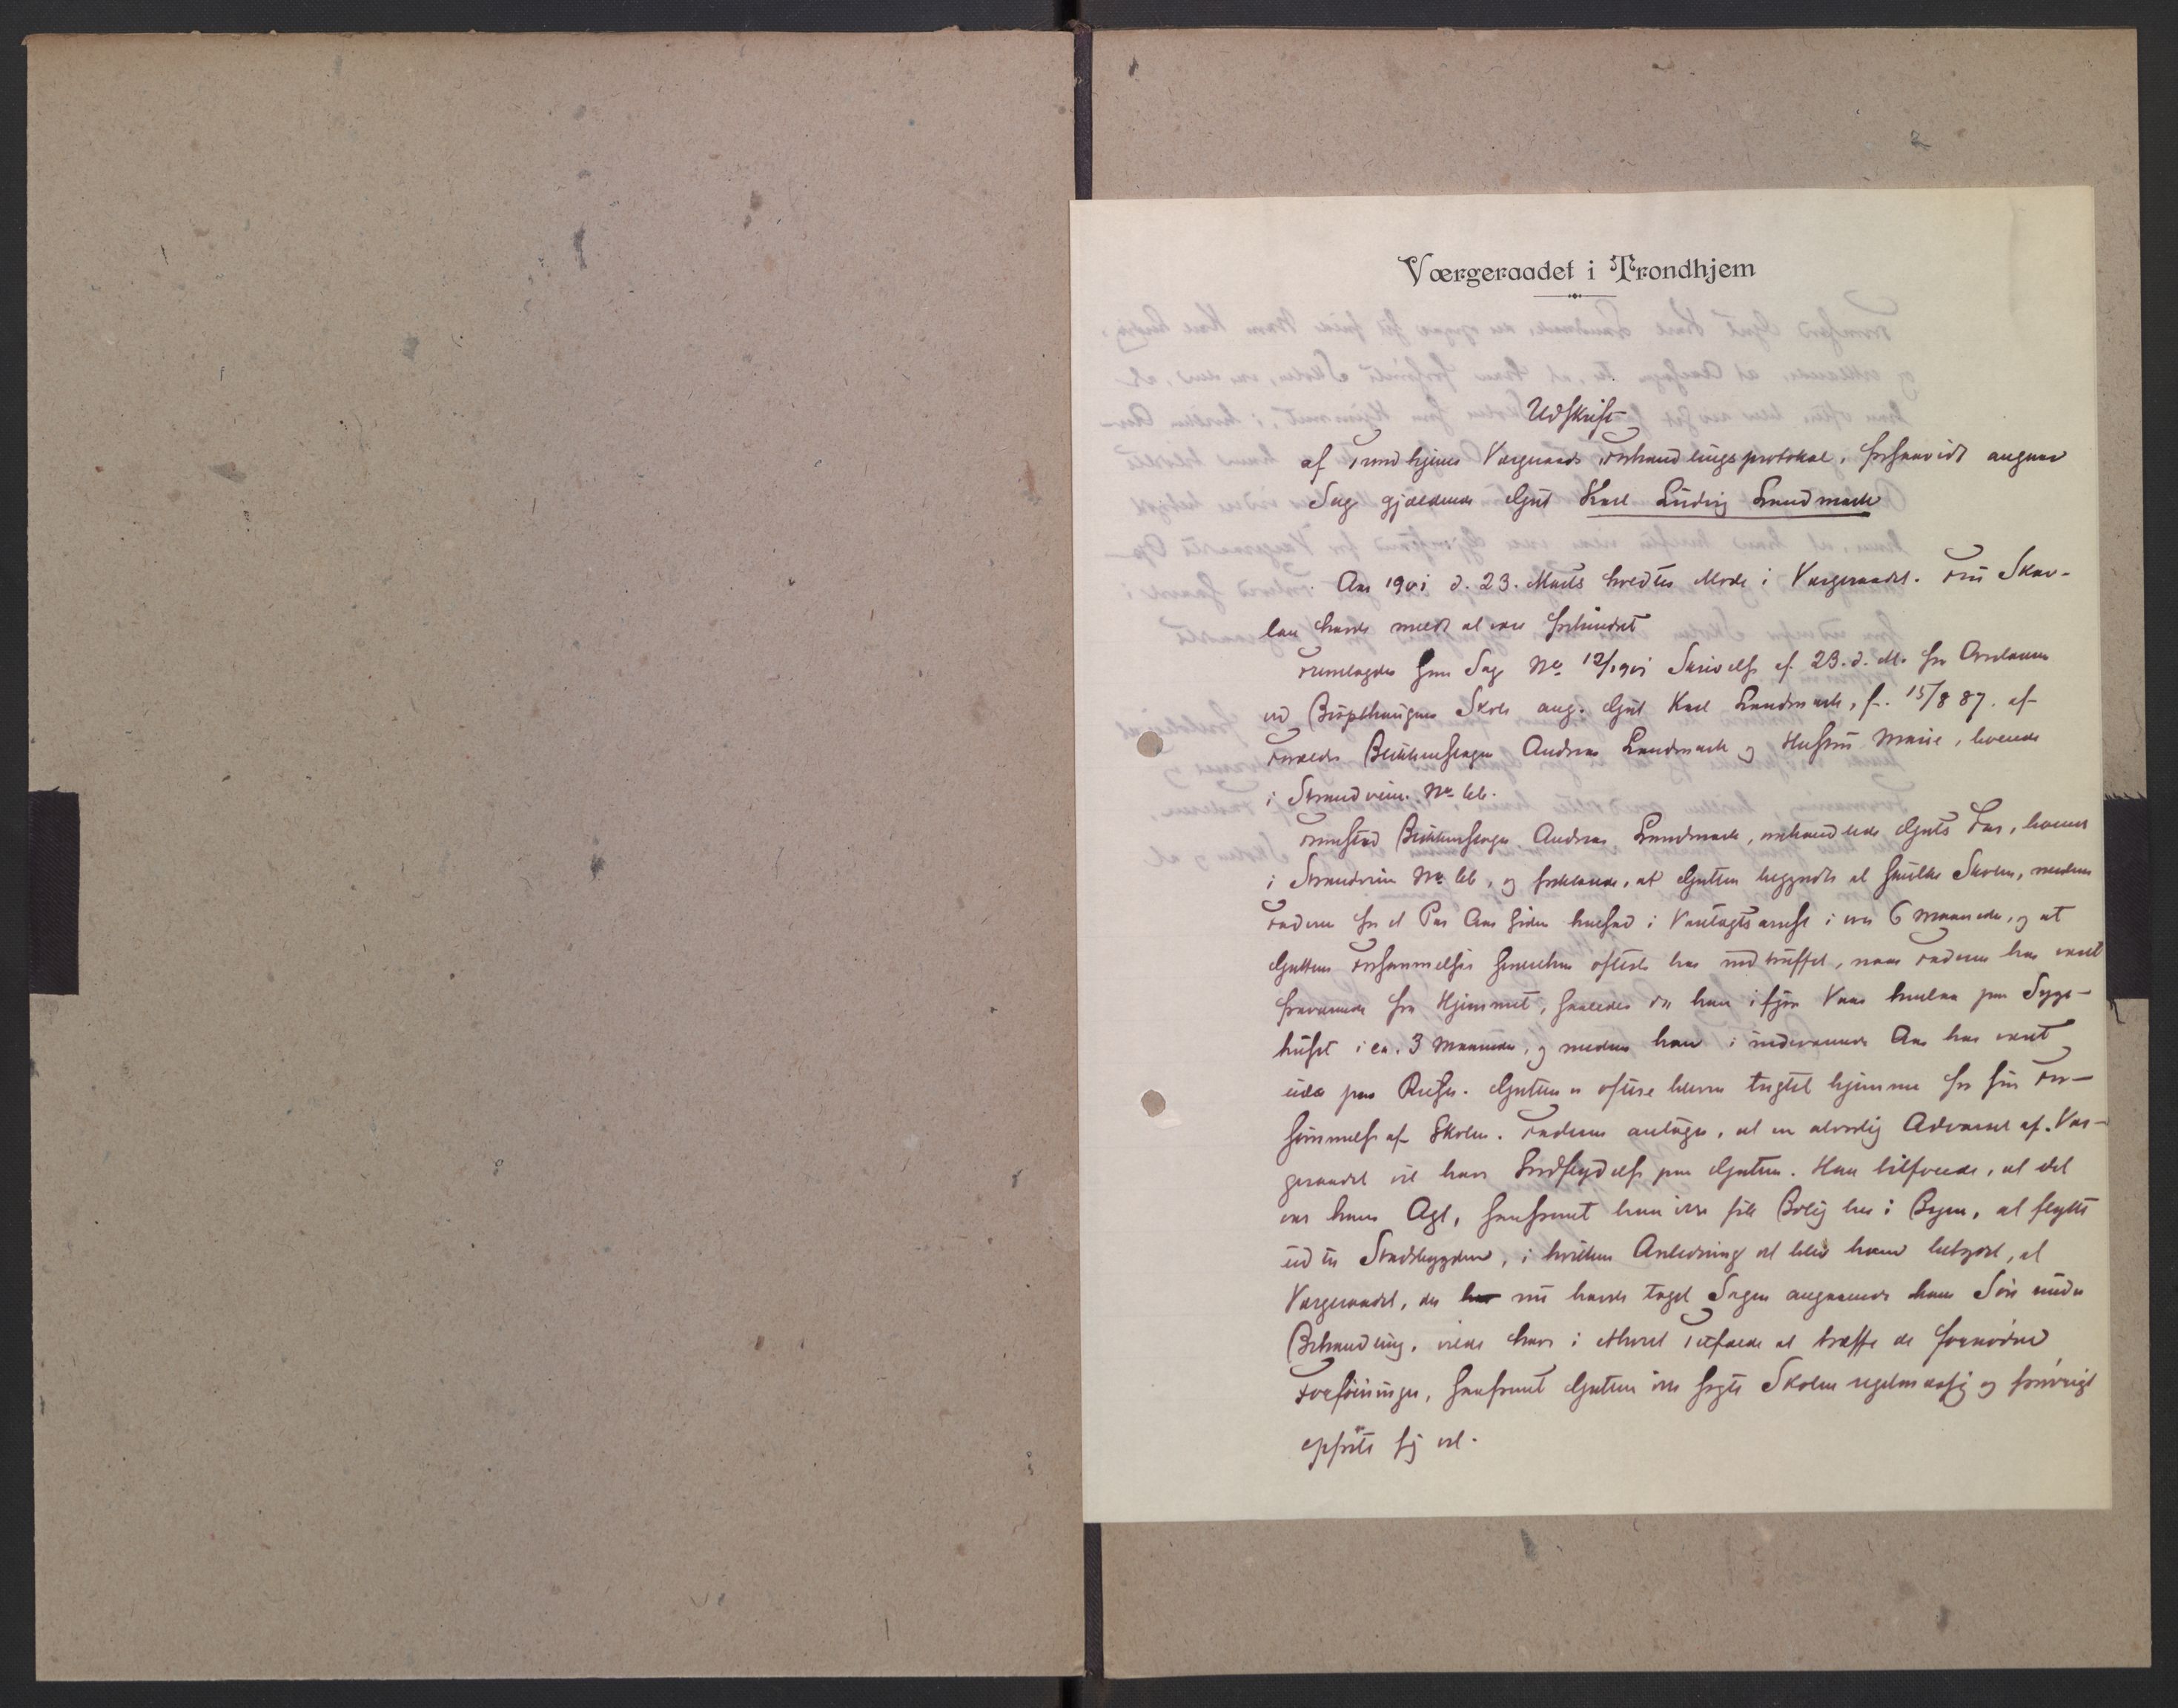 Værgeraadet i Trondhjem
Udskrift
af Trondhjems Værgeraads Forhandlingsprotokol, forsaavidt angaar
Sag gjældende Gut Karl Ludvig Landmark
Aar 1901 d. 23. Marts holdtes Møde i Værgeraadet. Fru Skav-
lan havde meldt at være forhindret
Fremlagdes som Sag No 12/1901 Skrivelse af 23. d. M. fra Overlæreren
ved Bispehaugens Skole ang. Gut Karl Landmark, f. 15/8 87. af
Forældre Blikkenslager Andreas Landmark og Hustru Marie, boende
i Strandveien No
Fremstod Blikkenslager Andreas Landmark, omhandlede Guts Far, boende
i Strandveien No , og forklarede, at Gutten begyndte at skulke Skolen, medens
Faderen for et Par Aar siden hensad i Varetægtsarrest i over 6 Maaneder, og at
Guttens Forsømmelser senerehen oftest har indtruffet, naar Faderen har været
fraværende fra Hjemmet, saaledes da han ifjor Vaar henlaa paa Syge-
huset i ca. 3 Maaneder, og medens han i indeværende Aar har været
ude paa Reiser. Gutten er oftere bleven tugtet hjemme for sin For-
sømmelse af Skolen. Faderen antager, at en alvorlig Advarsel af Vær-
geraadet vil have Indflydelse paa Gutten. Han tilføiede, at det
var hans Agt, saafremt han ikke fik Bolig her i Byen, at flytte
ud til Stadsbygden, i hvilken Anledning det blev ham betydet, at
Værgeraadet, der nu havde taget Sagen angaaende hans Søn under
Behandling, vilde have i ethvert Tilfælde at træffe de fornødne
Forføininger, saafremt Gutten ikke søgte Skolen regelmæssig og forøvrigt
opførte sig vel.